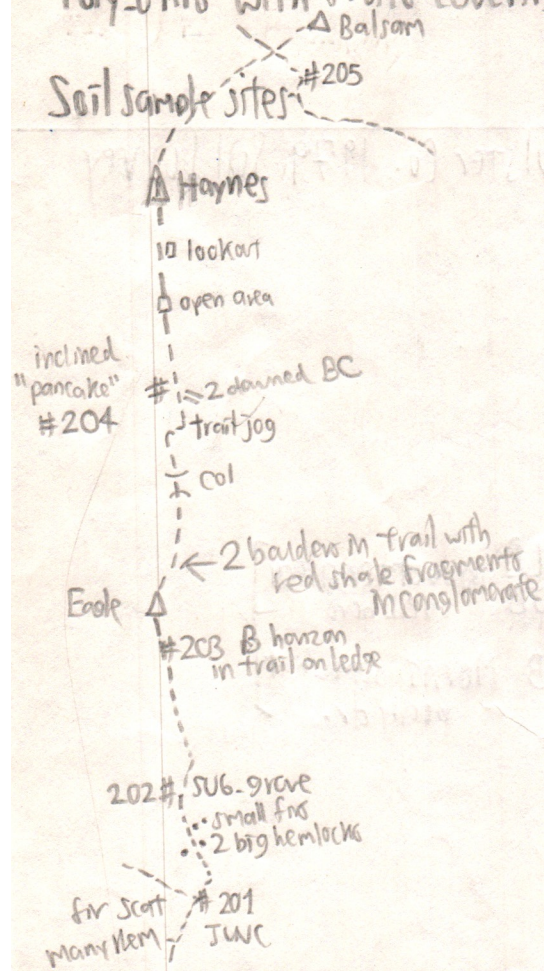 with
Balsam
#205
Soil sample sites
Haynes
lookout
open area
inclined
"pancake"
#204
# 2 downed BC
trail jog
col
2 boulders in trail with
red shale fragments
in conglomerate
Eagle
#203 B horizon
in trail on ledge
202 # SUG-grove
small firs
2 big hemlocks
fir scatt
many Hem
# 201
JUNC